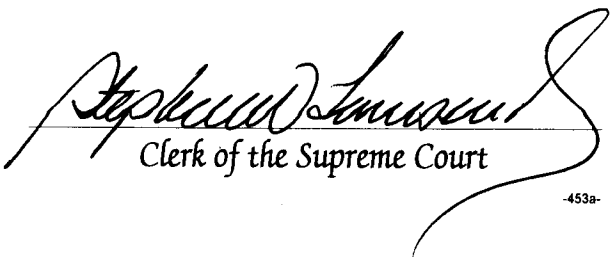 Stephen W. Townsend
Clerk of the Supreme Court
-453a-